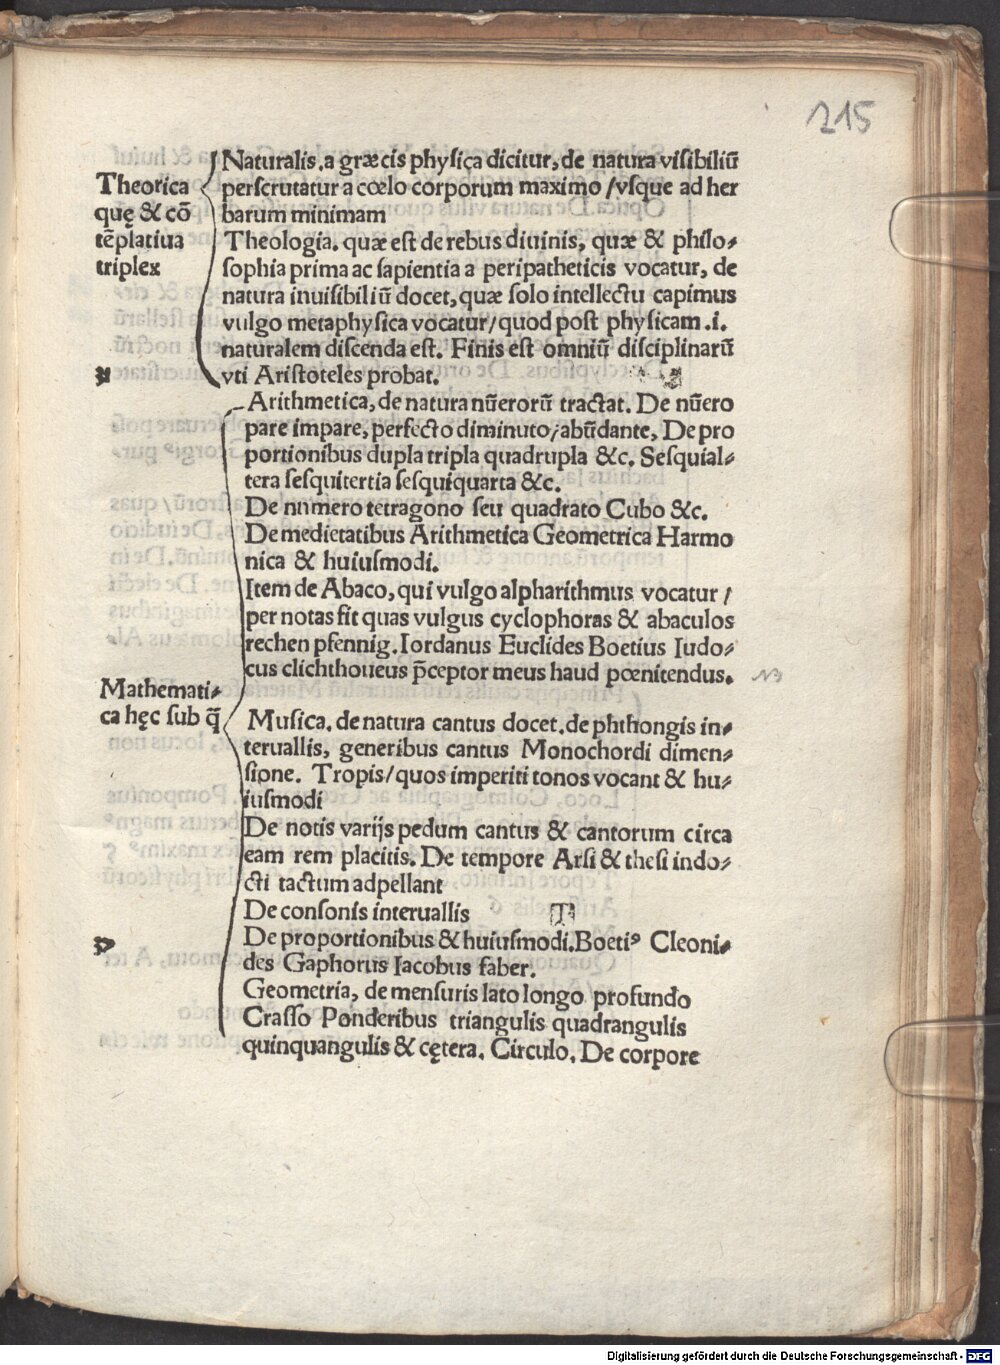 215
Theorica
quę & cō
tēplatiua
triplex
Naturalis. a græcis physica dicitur, de natura visibiliū
perscrutatur a cœlo corporum maximo / vsque ad her
barum minimam
Theologia. quæ est de rebus diuinis, quæ & philo-
sophia prima ac sapientia a peripatheticis vocatur, de
natura inuisibiliū docet, quæ solo intellectu capimus
vulgo metaphysica vocatur / quod post physicam .i.
naturalem discenda est. Finis est omniū disciplinarū
vti Aristoteles probat.
Mathemati-
ca hęc sub q̄
Arithmetica, de natura nūerorū tractat. De nūero
pare impare, perfecto diminuto / abūdante, De pro
portionibus dupla tripla quadrupla &c. Sesquial-
tera sesquitertia sesquiquarta &c.
De numero tetragono seu quadrato Cubo &c.
De medietatibus Arithmetica Geometrica Harmo
nica & huiusmodi.
Item de Abaco, qui vulgo alpharithmus vocatur /
per notas fit quas vulgus cyclophoras & abaculos
rechen pfennig. Iordanus Euclides Boetius Iudo-
cus clichthoueus p̄ceptor meus haud pœnitendus.
Musica. de natura cantus docet. de phthongis in-
teruallis, generibus cantus Monochordi dimen-
sione. Tropis / quos imperiti tonos vocant & hu-
iusmodi
De notis varijs pedum cantus & cantorum circa
eam rem placitis. De tempore Arsi & thesi indo-
cti tactum adpellant
De consonis interuallis
De proportionibus & huiusmodi. Boetiꝰ Cleoni-
des Gaphorus Iacobus faber.
Geometria, de mensuris lato longo profundo
Crasso Ponderibus triangulis quadrangulis
quinquangulis & cętera. Circulo. De corpore
Digitalisierung gefördert durch die Deutsche Forschungsgemeinschaft - DFG